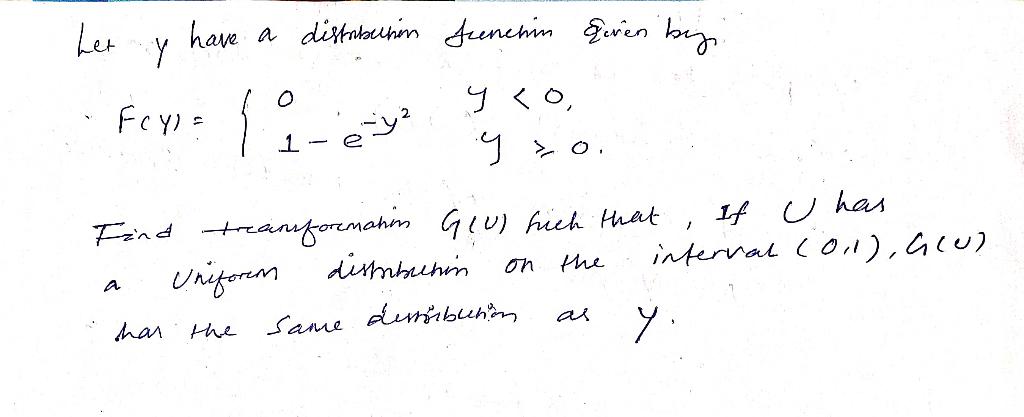 Let y have a distribution function given by
F(y) = { 0 y < 0,
1 - e^{-y²} y ≥ 0.
Find transformation G(U) such that, If U has
a Uniform distribution on the interval (0,1), G(U)
has the same distribution as y.